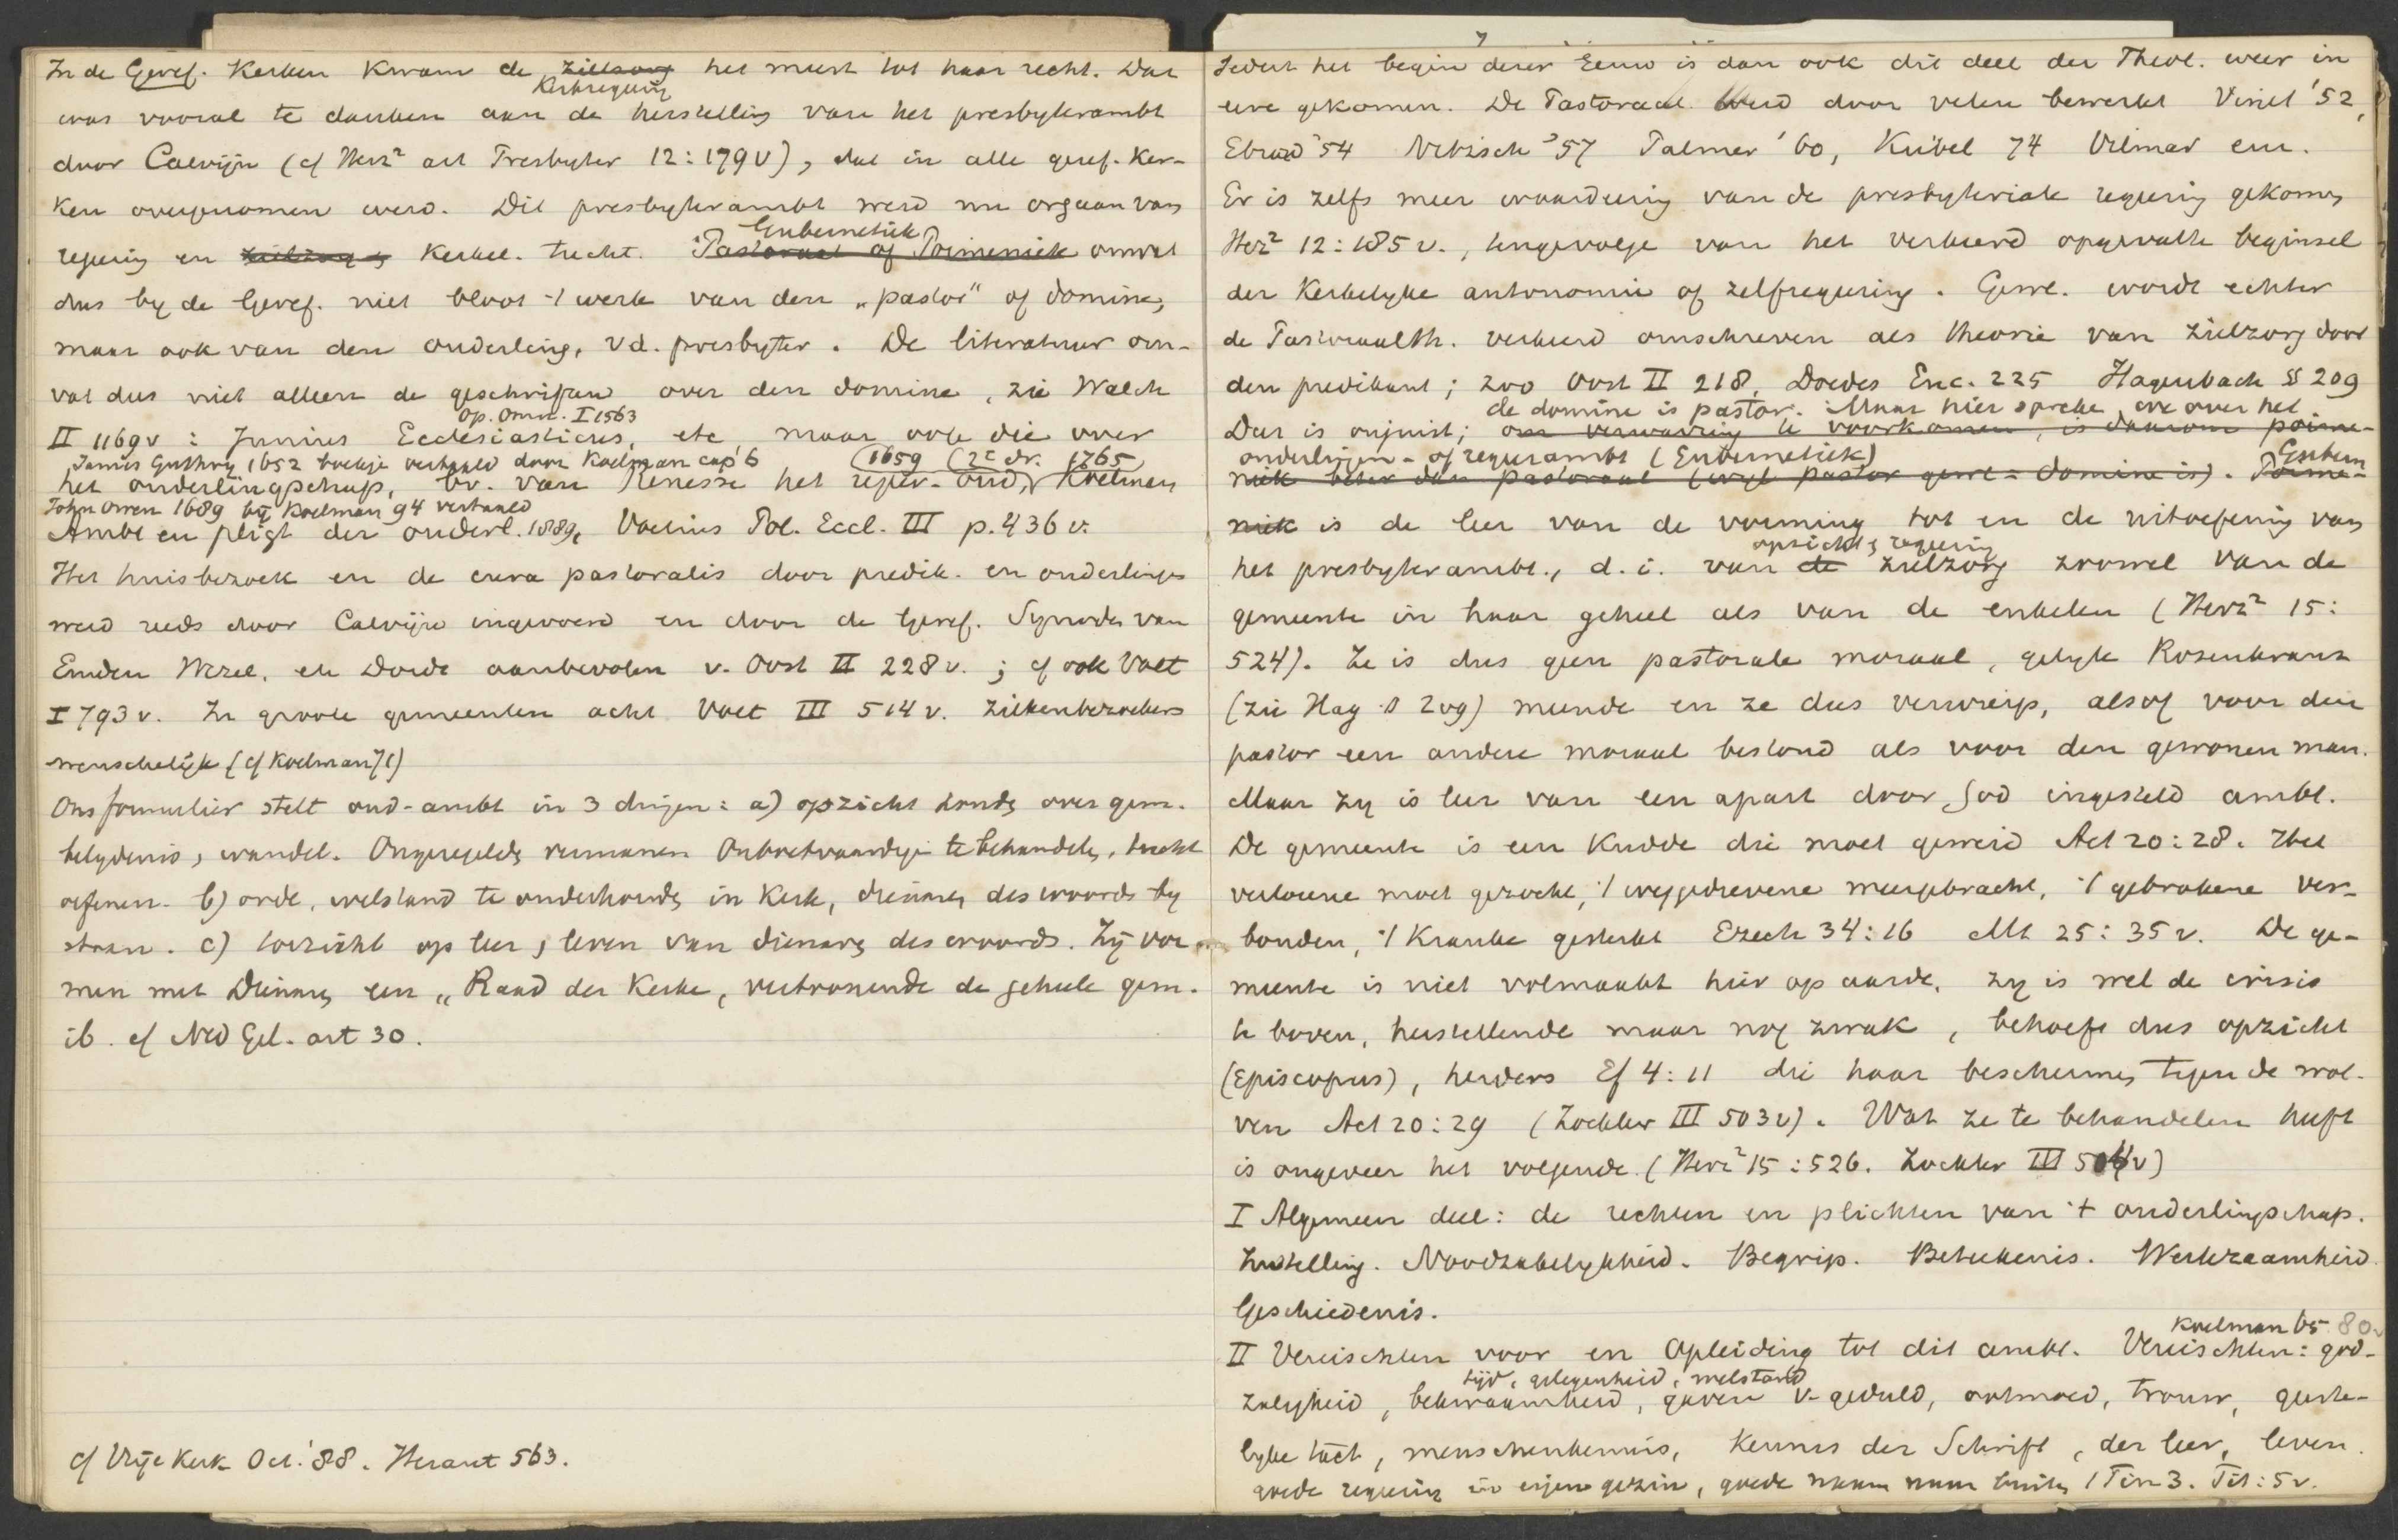 In de Geref. Kerken kwam de zielzorg het meest tot haar recht. Dat
Kerkregeering
was vooral te danken aan de herstelling van het presbyterambt
door Calvijn (cf Herz² art Presbyter 12:179v), dat in alle geref. Ker-
ken overgenomen werd. Dit presbyterambt werd nu orgaan van
Gubernetiek
regering en zielzorg en kerkel. tucht. Pastoraal of Poimeniek omvat
dus by de Geref. niet bloot 't werk van den „pastor" of domine,
maar ook van den ouderling, v.d. presbyter. De literatuur om-
vat dus niet alleen de geschriften over den domine, zie Walch
Op. Omn. I 1563
II 1169v: Junius Ecclesiasticus, etc, maar ook die over
James Guthry 1652 boekje vertaald door Koelman cap 6 (1659 (2e dr. 1765)
het ouderlingschap, bv. van Renesse het regeer-oud, Koelman
John Owen 1689 bij Koelman 94 vertaald
Ambt en pligt der ouderl. 1889, Voetius Pol. Eccl. III p. 436 v.
Het huisbezoek en de cura pastoralis door predik. en ouderlingen
werd reeds door Calvijn ingevoerd en door de Geref. Synodes van
Emden Wezel, en Dordt aanbevolen v. Oost II 228v.; cf ook Voet
I 793v. In groote gemeenten acht Voet III 514v. ziekenbezoekers
wenschelijk (cf Koelman 71)
Ons formulier stelt oud-ambt in 3 dingen: a) opzicht houde over gem.
belydenis, wandel. Ongeregelde vermanen Onboetvaardige te behandele, tucht
oefenen. b) orde, welstand te onderhoude in Kerk, dienare des woords by
staan. c) toezicht op leer, leven van dienare des woords. Zij vor-
men met Dienare een „Raad der Kerke, vertoonende de geheele gem.
ib. cf Ned Gel. art 30.
cf Vrije Kerk Oct. '88. Heraut 563.
7
Sedert het begin dezer Eeuw is dan ook dit deel der Theol. weer in
eere gekomen. De Pastoraal. werd door velen bewerkt Vinet '52,
Ebrard '54 Nitzsch '57 Palmer '60, Kübel 74 Vilmar enz.
Er is zelfs meer waardering van de presbyteriale regering gekomen
Herz² 12:185 v., tengevolge van het verkeerd opgevatte beginsel
der Kerkelyke autonomie of zelfregering. Gewl. wordt echter
de Pastoraalth. verkeerd omschreven als theorie van zielzorg door
den predikant; zoo Oost II 218, Doedes Enc. 225 Hagenbach § 209
de domine is pastor. Maar hier spreke we over het
Dat is onjuist; om verwarring te voorkomen, is daarom poime-
ouderlingen- of regeerambt (Gubernetiek) Gubern
niek beter dan pastoraal (wyl pastor gewl = domine is). Poime-
niek is de leer van de vorming tot en de uitoefening van
opzicht, regering
het presbyterambt., d.i. van de zielzorg zoowel van de
gemeente in haar geheel als van de enkelen (Herz² 15:
524). Ze is dus geen pastorale moraal, gelyk Rosenkranz
(zie Hag § 209) meende en ze dus verwierp, alsof voor den
pastor een andere moraal bestond als voor den gewonen man.
Maar zy is leer van een apart door God ingesteld ambt.
De gemeente is een Kudde die moet geweid Act 20:28. Het
verlorene moet gezocht, 't weggedrevene weergebracht, 't gebrokene ver-
bonden, 't Kranke gesterkt Ezech 34:16 Mt 25:35 v. De ge-
meente is niet volmaakt hier op aarde, zy is wel de crisis
te boven, herstellende maar nog zwak, behoeft dus opzicht
(Episcopus), herders Ef 4:11 die haar beschermen tegen de wol-
ven Act 20:29 (Zockler III 503v). Wat ze te behandelen heeft
is ongeveer het volgende (Herz² 15:526. Zockler III 504v)
I Algemeen deel: de rechten en plichten van 't ouderlingschap.
Instelling. Noodzakelykheid. Begrip. Beteekenis. Werkzaamheid.
Geschiedenis.
Koelman 65 80v
II Vereischten voor en Opleiding tot dit ambt. Vereischten: god-
tijd, gelegenheid, welstand
zaligheid, bekwaamheid, gaven v. geduld, ootmoed, trouw, geeste-
lyke tact, menschenkennis, Kennis der Schrift, der leer, leven.
goede regering in eigen gezin, goede naam naar buiten 1 Tim 3. Tit: 5v.